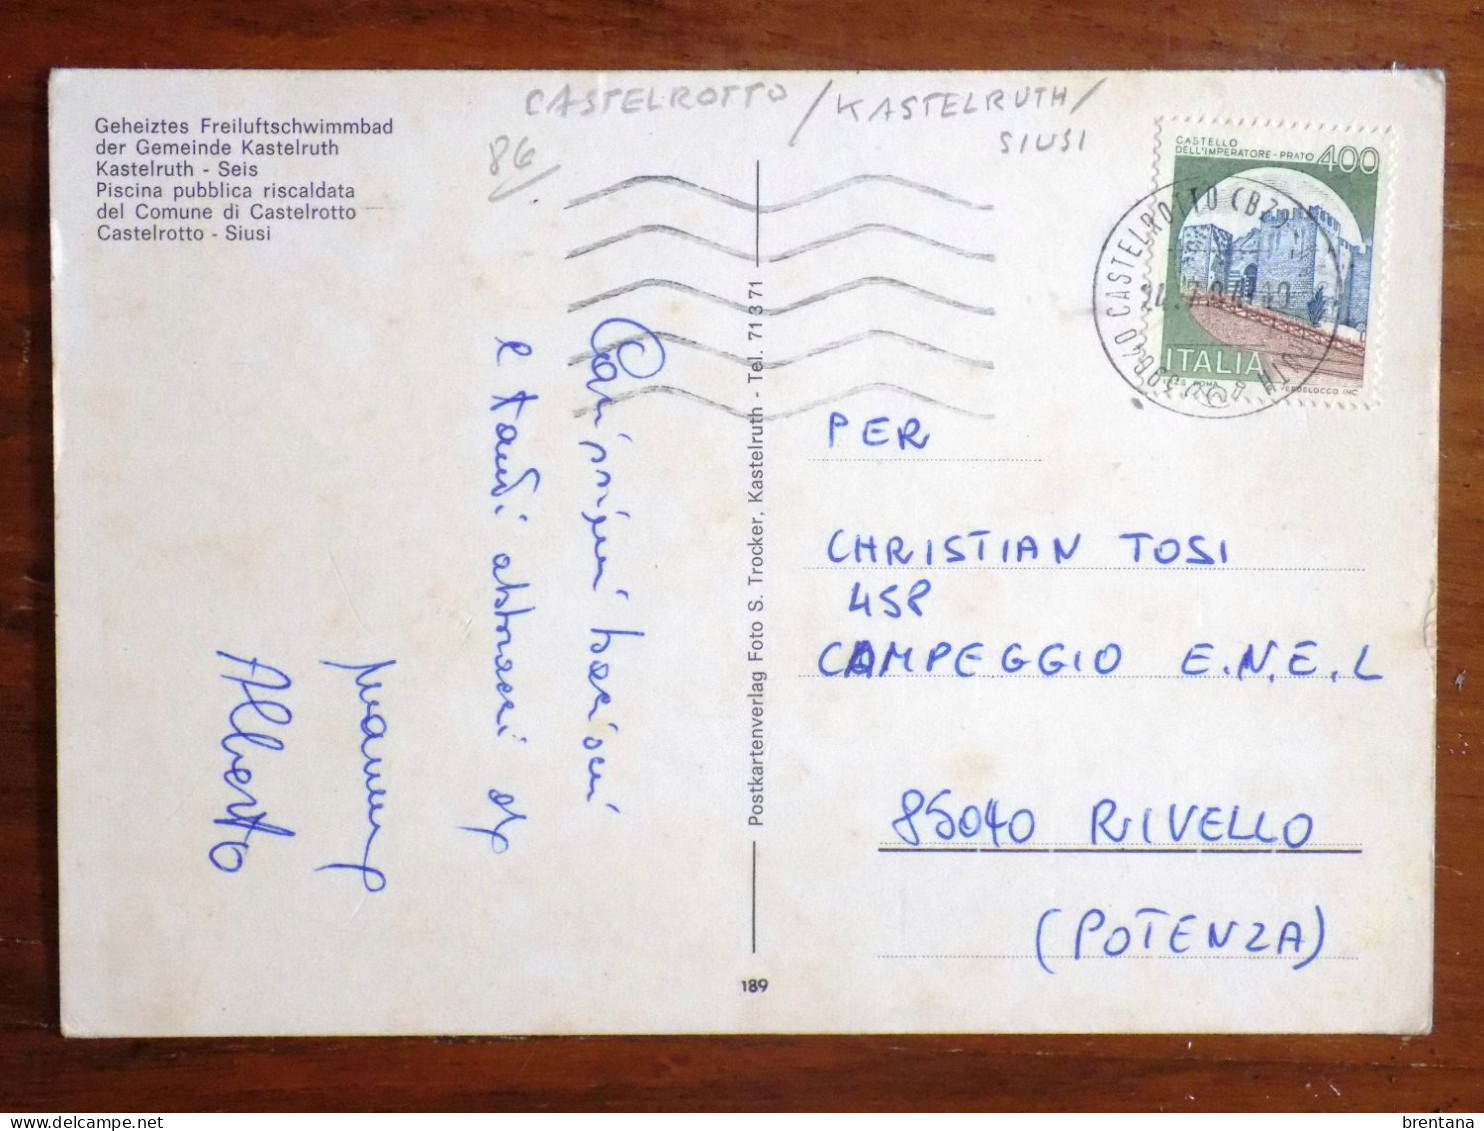 Geheiztes Freiluftschwimmbad
der Gemeinde Kastelruth
Kastelruth - Seis
Piscina pubblica riscaldata
del Comune di Castelrotto
Castelrotto - Siusi
CASTELROTTO / KASTELRUTH /
SIUSI
86/
CASTELLO
DELL'IMPERATORE - PRATO 400
ITALIA
ROMA
39040 CASTELROTTO (BZ)
Carissimi bacioni
e tanti abbracci da
Mamma
Alberto
Postkartenverlag Foto S. Trocker, Kastelruth - Tel. 71371
189
PER
CHRISTIAN TOSI
458
CAMPEGGIO E.N.E.L
85040 RIVELLO
(POTENZA)
brentana